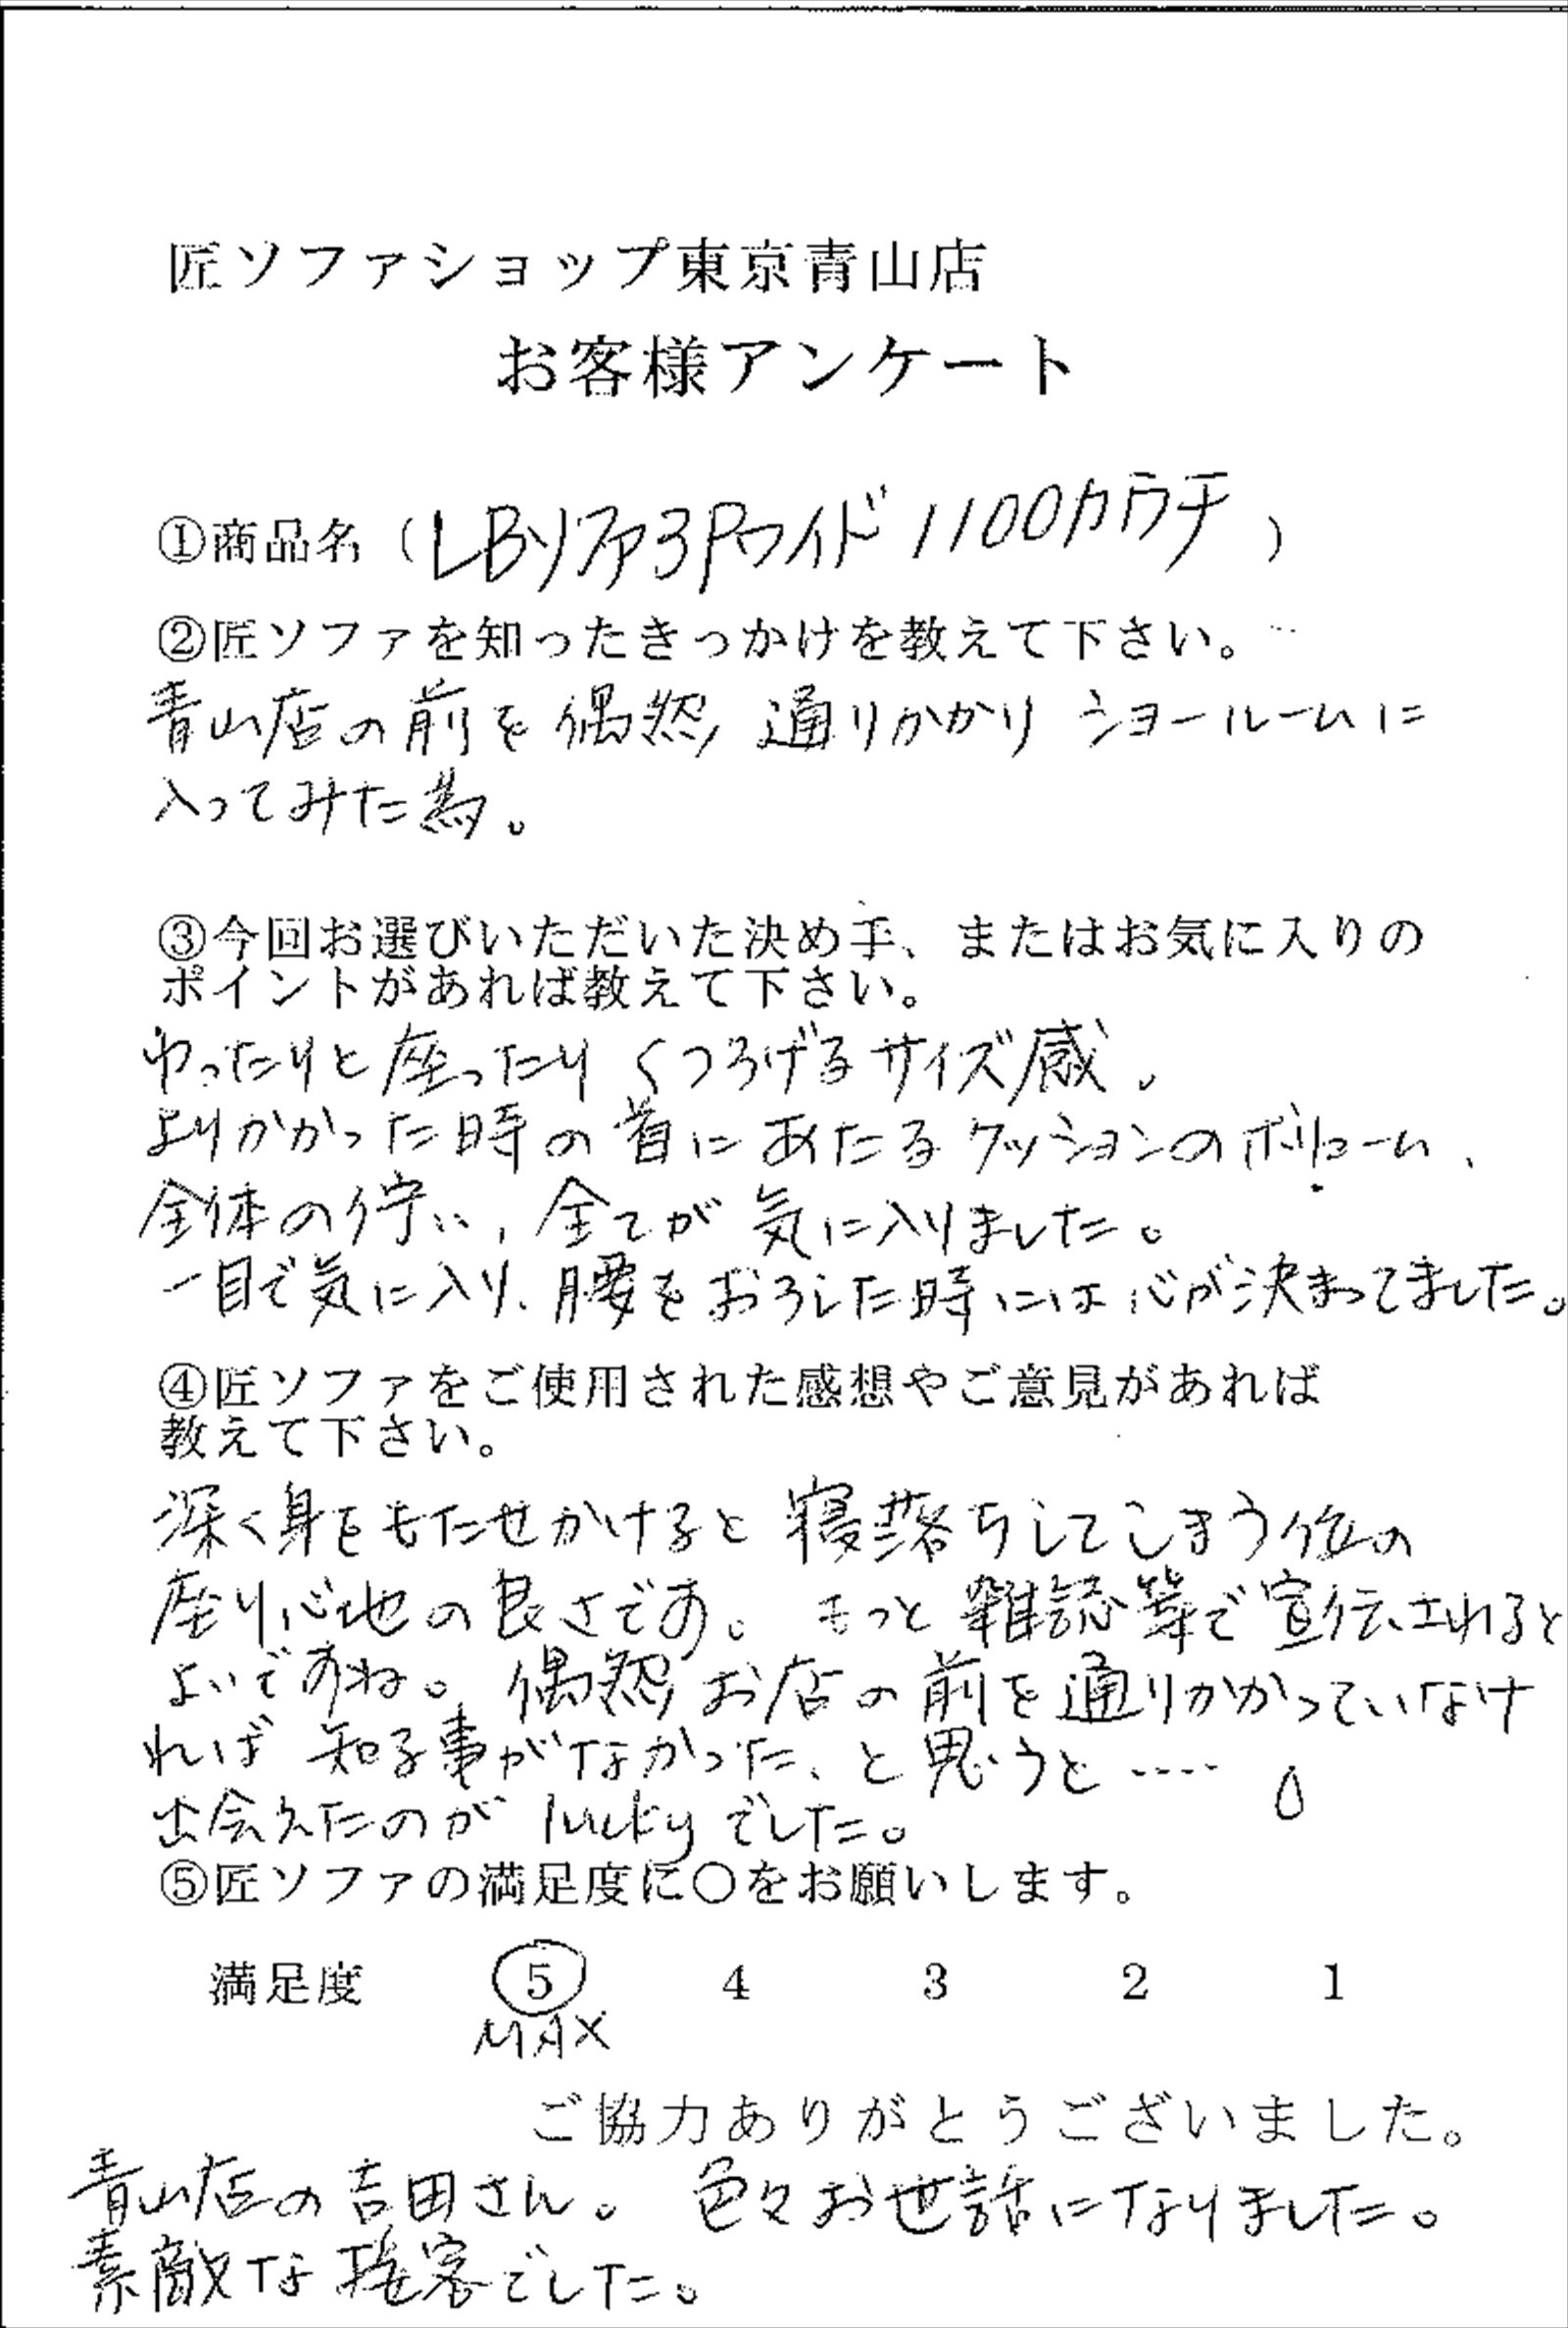 匠ソファショップ東京青山店
お客様アンケート
①商品名（LBソファ3Pワイド1100カウチ）
②匠ソファを知ったきっかけを教えて下さい。
青山店の前を偶然通りかかりショールームに
入ってみた為。
③今回お選びいただいた決め手、またはお気に入りの
ポイントがあれば教えて下さい。
ゆったりと座ったりくつろげるサイズ感。
よりかかった時の首にあたるクッションのボリューム、
全体の佇い、全てが気に入りました。
一目で気に入り、腰をおろした時には心が決まってました。
④匠ソファをご使用された感想やご意見があれば
教えて下さい。
深く身をもたせかけると寝落ちしてしまう位の
座り心地の良さです。もっと雑誌等で宣伝されると
よいですね。偶然お店の前を通りかかっていなけ
れば知る事がなかった、と思うと‥‥
出会えたのがluckyでした。
⑤匠ソファの満足度に○をお願いします。
満足度 5 4 3 2 1
MAX
ご協力ありがとうございました。
青山店の吉田さん。色々お世話になりました。
素敵な接客でした。